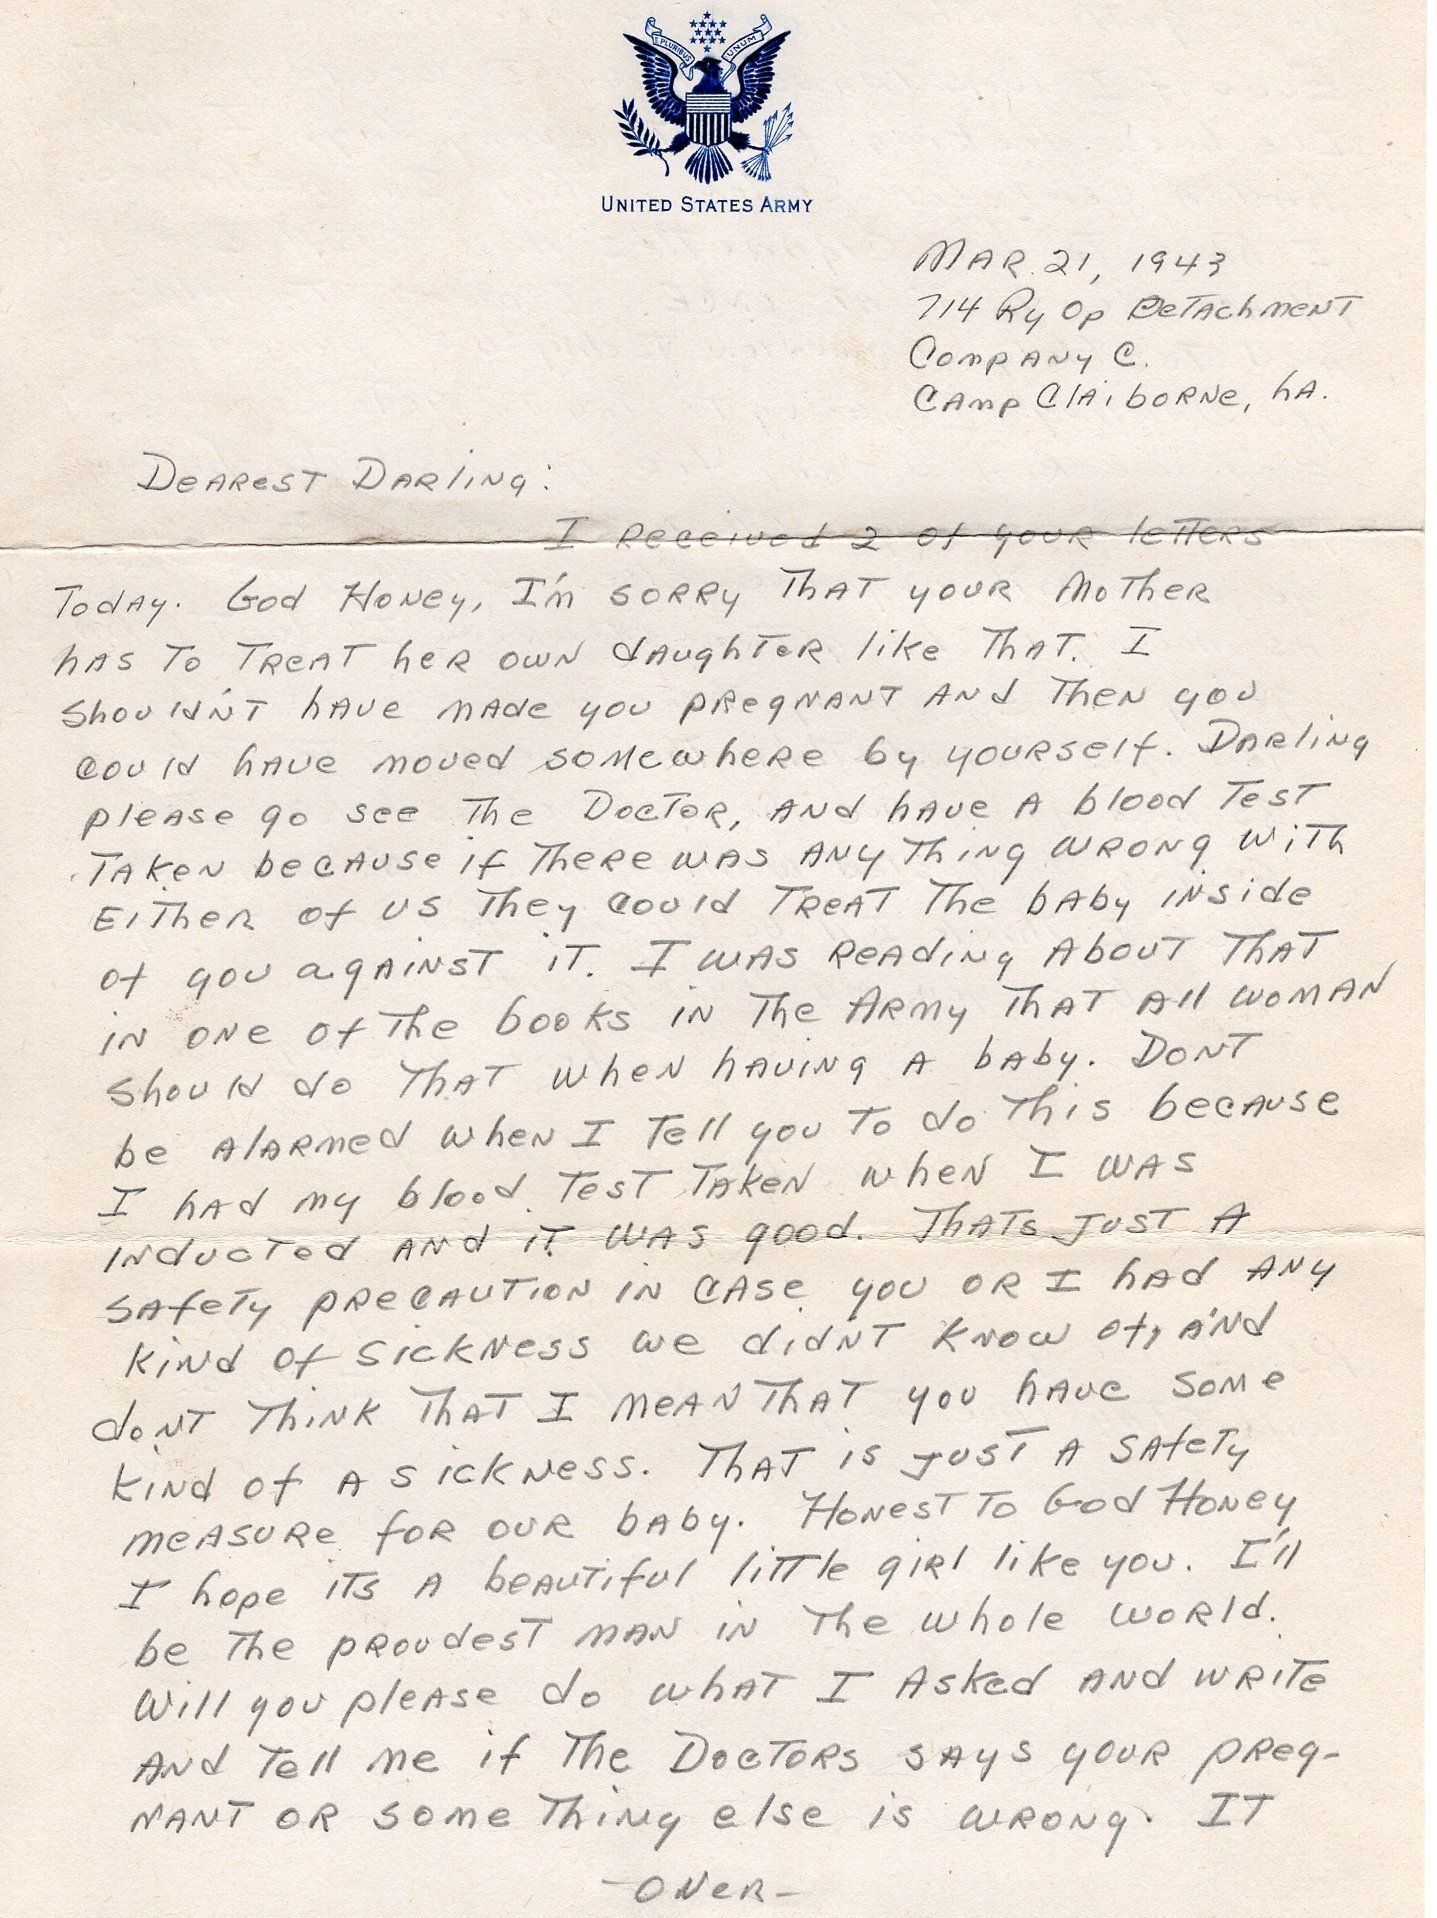 E PLURIBUS UNUM
UNITED STATES ARMY
MAR. 21, 1943
714 Ry Op Detachment
Company C.
Camp Claiborne, LA.
Dearest Darling:
I received 2 of your letters
Today. God Honey, I'm sorry that your Mother
has to treat her own daughter like that. I
shouldn't have made you pregnant and then you
could have moved somewhere by yourself. Darling
please go see the Doctor, and have a blood test
taken because if there was any thing wrong with
either of us they could treat the baby inside
of you against it. I was reading about that
in one of the books in the Army that all woman
should do that when having a baby. Dont
be alarmed when I tell you to do this because
I had my blood test taken when I was
inducted and it was good. Thats just a
safety precaution in case you or I had any
kind of sickness we didn't know of, and
dont think that I mean that you have some
kind of a sickness. That is just a safety
measure for our baby. Honest to God Honey
I hope its a beautiful little girl like you. I'll
be the proudest man in the whole world.
Will you please do what I asked and write
and tell me if the Doctors says your preg-
nant or some thing else is wrong. It
-over-